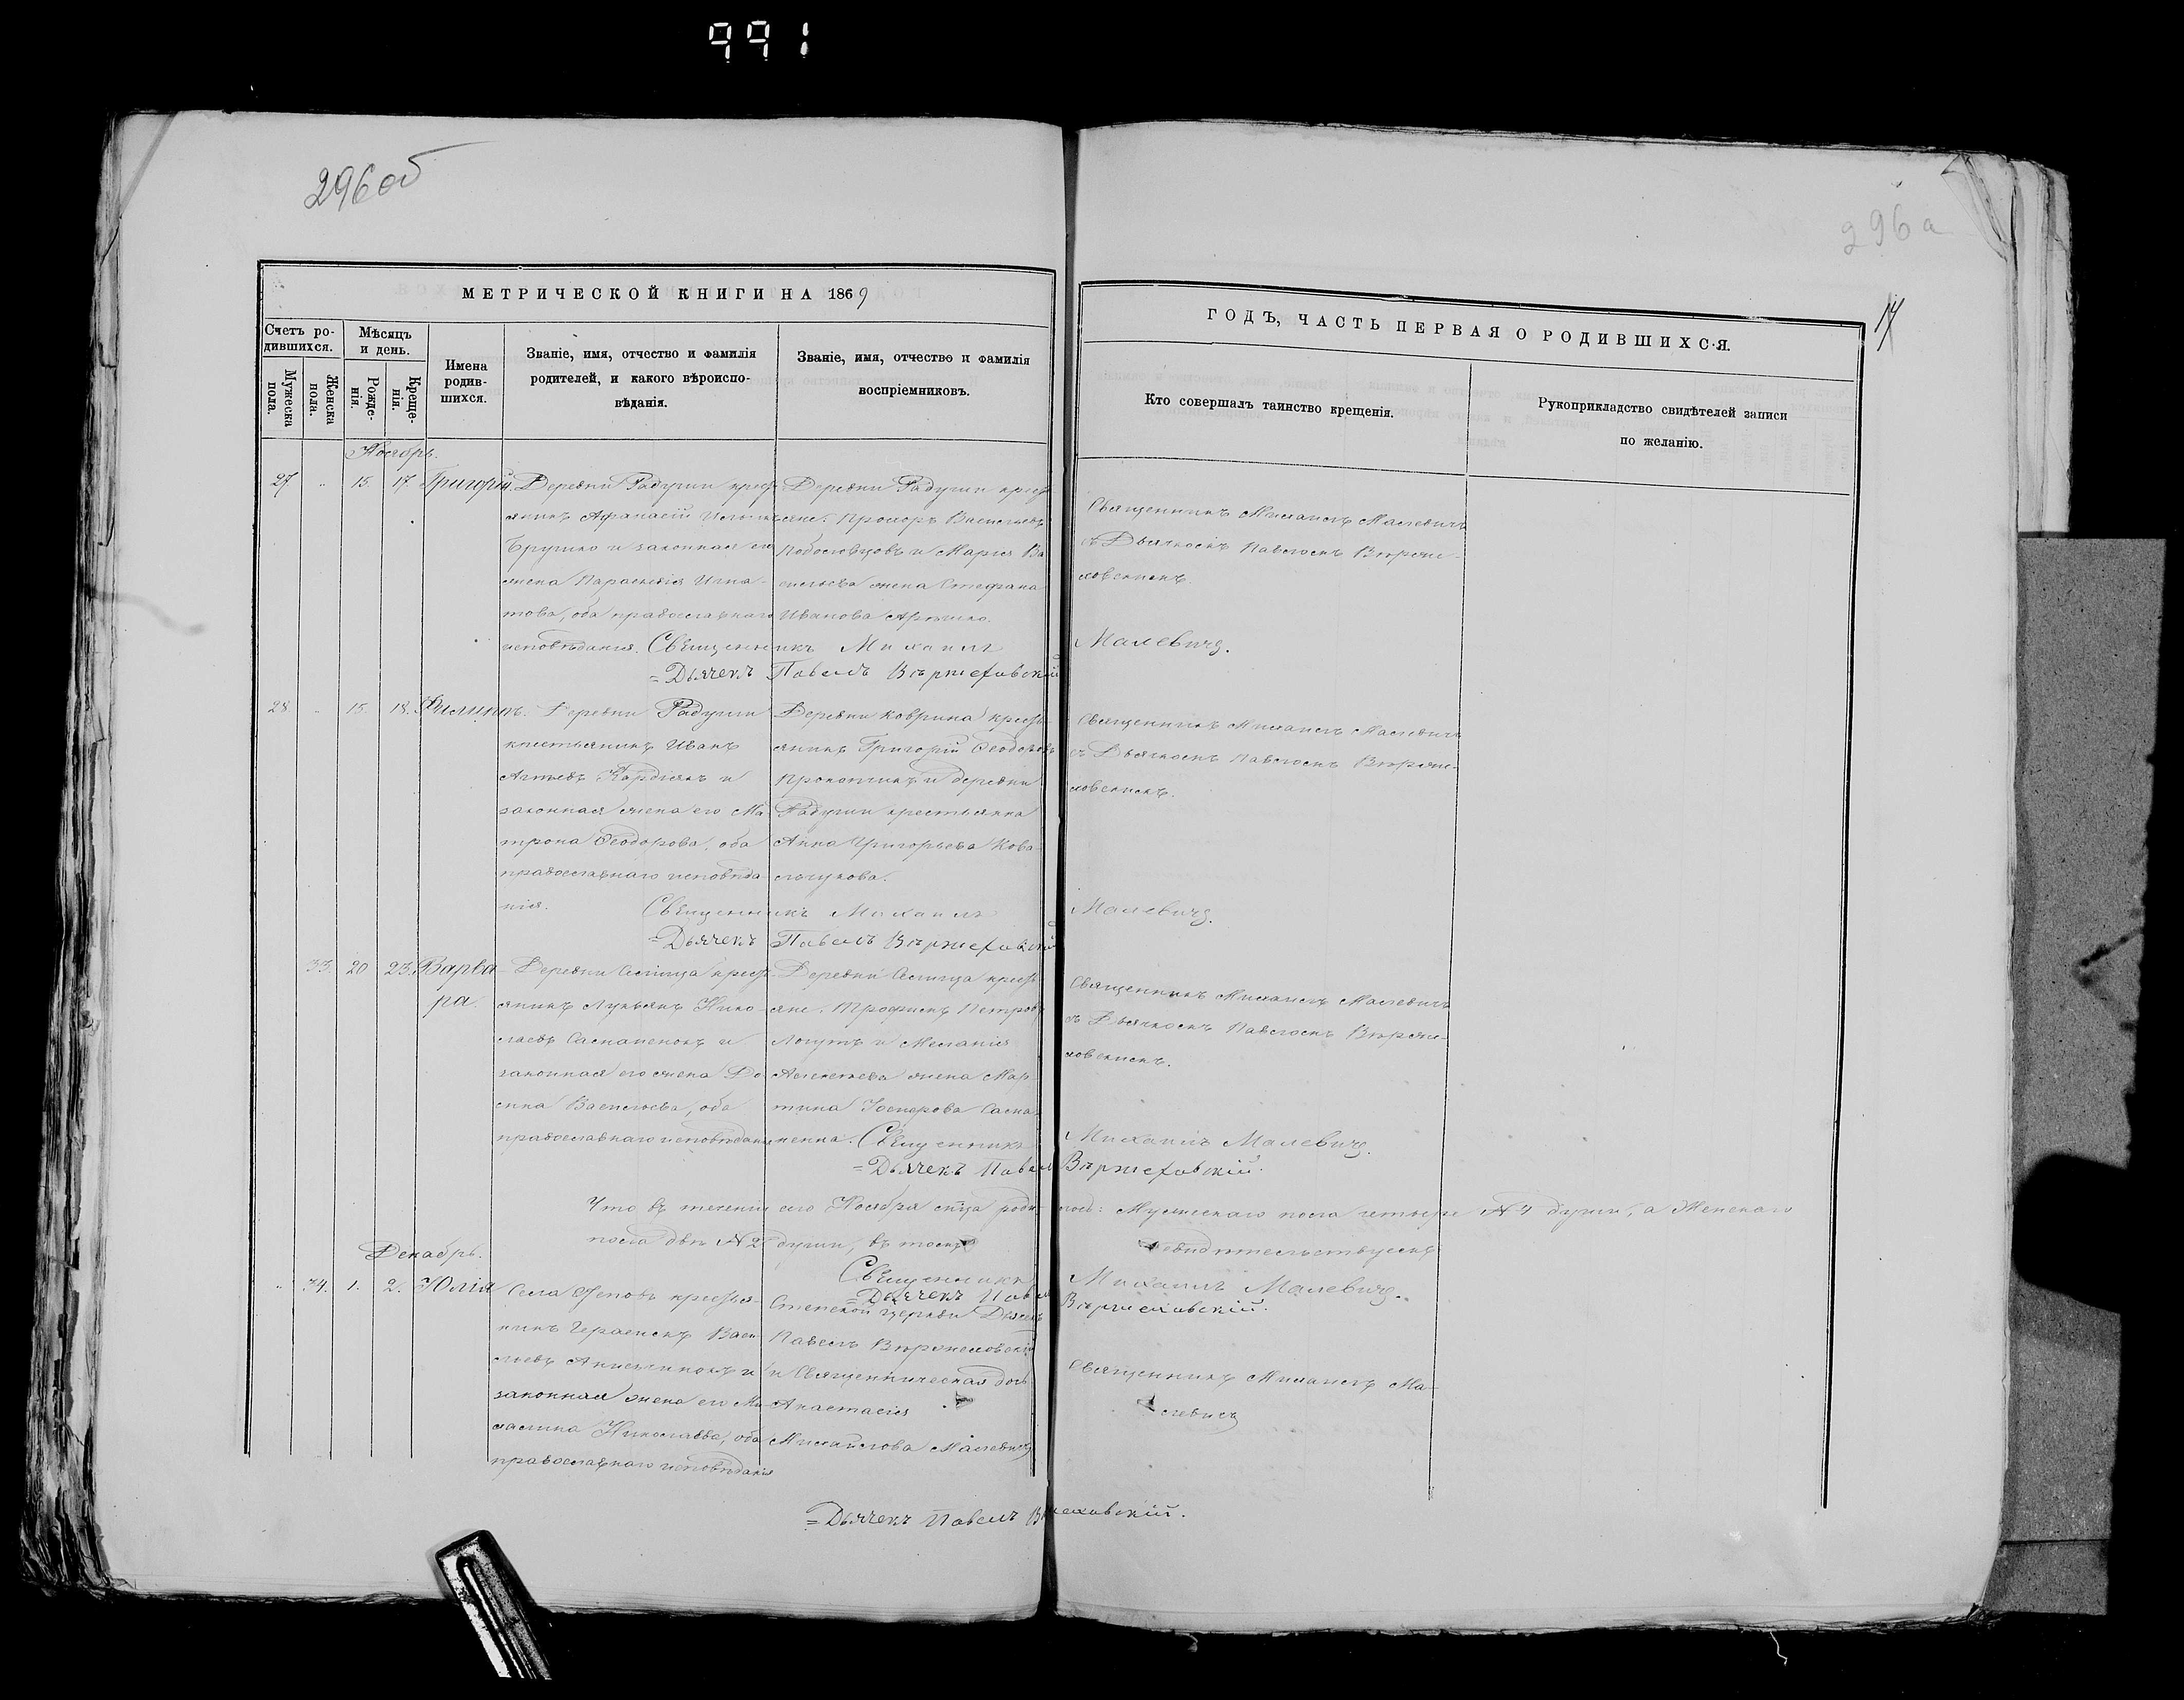 991
296об
296а
17
МЕТРИЧЕСКОЙ КНИГИ НА 1869
ГОДЪ, ЧАСТЬ ПЕРВАЯ О РОДИВШИХСЯ.
Счетъ ро-
дившихся.
Мужеска
пола.
Женска
пола.
Мѣсяцъ
и день.
Рожде-
нія.
Креще-
нія.
Имена
родив-
шихся.
Званіе, имя, отчество и фамилія
родителей, и какого вѣроиспо-
вѣданія.
Званіе, имя, отчество и фамилія
воспріемниковъ.
Кто совершалъ таинство крещенія.
Рукоприкладство свидѣтелей записи
по желанію.
Ноябрь.
27 " 15. 17. Григорій.
Деревни Радучи крест-
янинъ Афанасій
и законная его
жена Параскевія Игна-
това, оба православнаго
исповѣданія.
Деревни Радучи крест-
яне: Прохоръ Васильевъ
и Марѳа Ва-
сильева жена Стефана
Иванова
Священникъ Михаилъ Малевичъ
съ Дьячкомъ Павломъ Вержe-
ховскимъ.
Священникъ Михаилъ Малевичъ.
=Дьячекъ Павелъ Вержеховскій
28 " 15. 18. Филиппъ.
Деревни Радучи
крестьянинъ Иванъ
и
законная жена его Ма-
трона Ѳеодорова, оба
православнаго исповѣда-
нія.
Деревни Коврина крест-
янинъ Григорій Ѳеодоровъ
Прокопчикъ и деревни
Радучи крестьянка
Анна Григорьева Кова-
льчукова.
Священникъ Михаилъ Малевичъ
съ Дьячкомъ Павломъ Верже-
ховскимъ.
Священникъ Михаилъ Малевичъ.
=Дьячекъ Павелъ Вержеховскій
33. 20 23. Варва-
ра.
Деревни Селища крест-
янинъ Лукьянъ Нико-
лаевъ и
законная его жена До-
мна Васильева, оба
православнаго исповѣданія
Деревни Селища крест-
яне: Трофимъ Петровъ
и Меланія
Алексѣева жена Мар-
тина
Священникъ Михаилъ Малевичъ
съ Дьячкомъ Павломъ Верже-
ховскимъ.
Священникъ Михаилъ Малевичъ.
=Дьячекъ Павелъ Вержеховскій.
Что въ теченіи сего Ноября мѣсяца роди-лось: Мужескаго пола четыре №4 души, а Женскаго
пола двѣ №2 души, въ томъ свидѣтельствуемъ
Священникъ Михаилъ Малевичъ.
=Дьячекъ Павелъ Вержеховскій.
Декабрь.
" 34. 1. 2. Юлія
Села крестья-
нинъ Герасимъ Васи-
льевъ и
законная жена его
Николаева, оба
православнаго исповѣданія
церкви Дьячекъ
Павелъ Вержеховскій
и Священническая дочь
Анастасія
Михайлова Малевичъ
Священникъ Михаилъ Ма-
левичъ
=Дьячекъ Павелъ Вержеховскій.